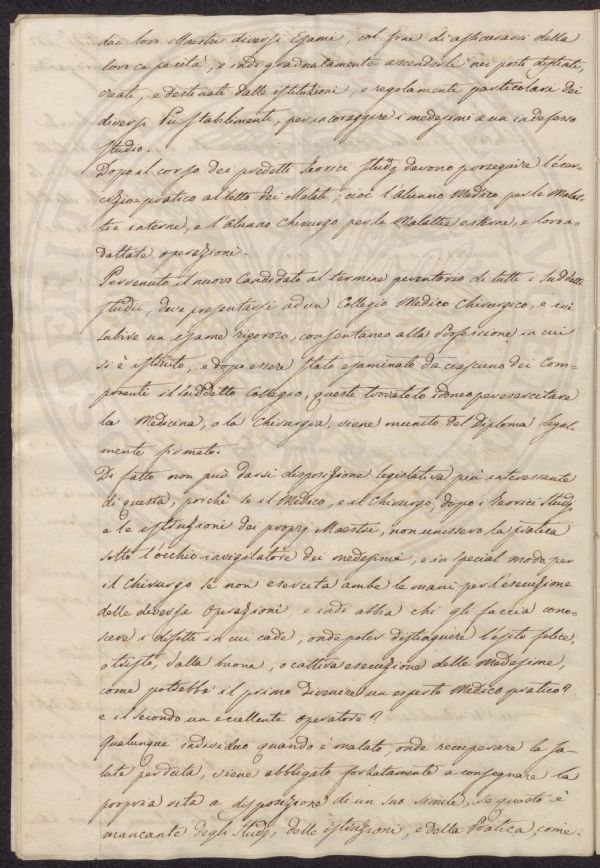 dai loro Maestri diversi Esami, col fine di assicurarsi della
loro capacità, e indi gradualmente ascenderli nei posti distinti,
creati, e destinati dalle istituzioni, e regolamenti particolari dei
diversi Pii stabilimenti, per incoraggire i medesimi a un indefesso
studio.
Dopo il corso dei predetti Teorici Studj devono perseguire l'eser-
cizio pratico al letto dei Malati; cioè l'Alunno Medico per le Malat-
tie interne, e l'Alunno Chirurgo per le Malattie esterne, e loro a-
dattate operazioni.
Pervenuto il nuovo Candidato al termine perentorio di tutti i suddetti
studii, deve presentarsi ad un Collegio Medico Chirurgico, e ivi
subire un esame rigoroso, consentaneo alla Professione in cui
si è istruito, e dopo essere stato esaminato da ciascuno dei Com-
ponenti il suddetto Collegio, questi trovatolo idoneo per esercitare
la Medicina, o la Chirurgia, viene munito del Diploma legal-
mente firmato.
Di fatto non può darsi disposizione legislativa più interessante
di questa, poichè se il Medico, e il Chirurgo, dopo i Teorici Studj
e le istruzioni dei proprj Maestri, non unissero la pratica
sotto l'occhio invigilatore dei medesimi, e in special modo per
il Chirurgo se non esercita ambe le mani per l'esecuzione
delle diverse operazioni e indi abbia chi gli faccia cono-
scere i difetti in cui cade, onde poter distinguere l'esito felice,
o tristo, dalla buona, o cattiva esecuzione delle medesime,
come potrebbe il primo divenire un esperto Medico pratico?
e il secondo un eccellente operatore?
Qualunque individuo quando è malato, onde recuperare la sa-
lute perduta, viene obbligato forzatamente a consegnare la
propria vita a disposizione di un suo simile, se questo è
mancante degli Studj, delle istruzioni, e della Pratica, come